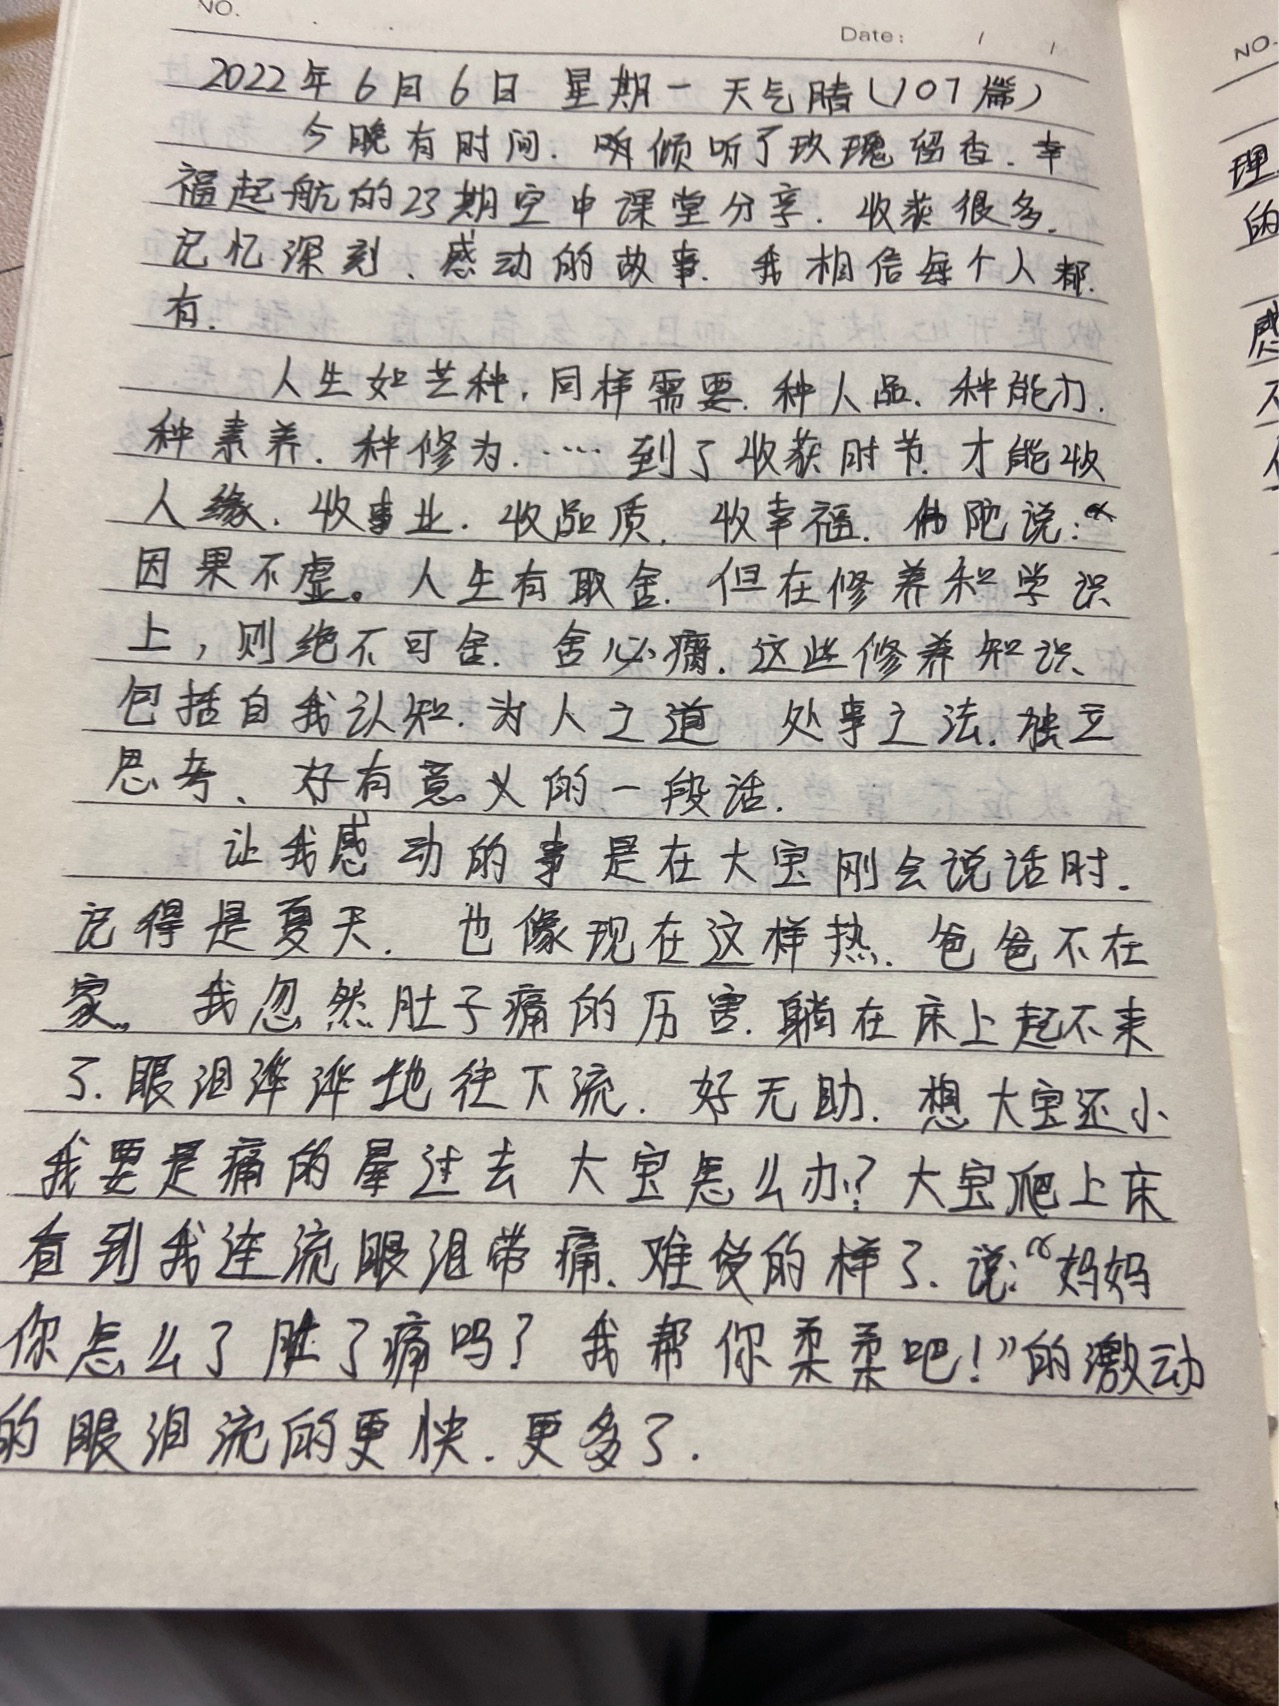 NO.
Date: / /
2022年6月6日 星期一 天气晴(107篇)
今晚有时间. 倾听了玫瑰留香.幸
福起航的23期空中课堂分享. 收获很多.
记忆深刻、感动的故事. 我相信每个人都.
有.
人生如芒种,同样需要.种人品、种能力.
种素养.种修为.……到了收获时节.才能收
人缘、收事业.收品质.收幸福. 佛陀说:“
因果不虚。人生有取舍.但在修养和学识
上,则绝不可舍. 舍必痛.这些修养知识、
包括自我认知.为人之道 处事之法.独立
思考、好有意义的一段话.
让我感动的事是在大宝刚会说话时.
记得是夏天. 也像现在这样热.爸爸不在
家。我忽然肚子痛的历害.躺在床上起不来
了.眼泪哗哗地往下流. 好无助.想大宝还小
我要是痛的晕过去 大宝怎么办?大宝爬上床
看到我连流眼泪带痛、难受的样了.说:“妈妈
你怎么了 肚了痛吗?我帮你柔柔吧!”的激动
的眼泪流的更快.更多了.
NO.
理
的
感